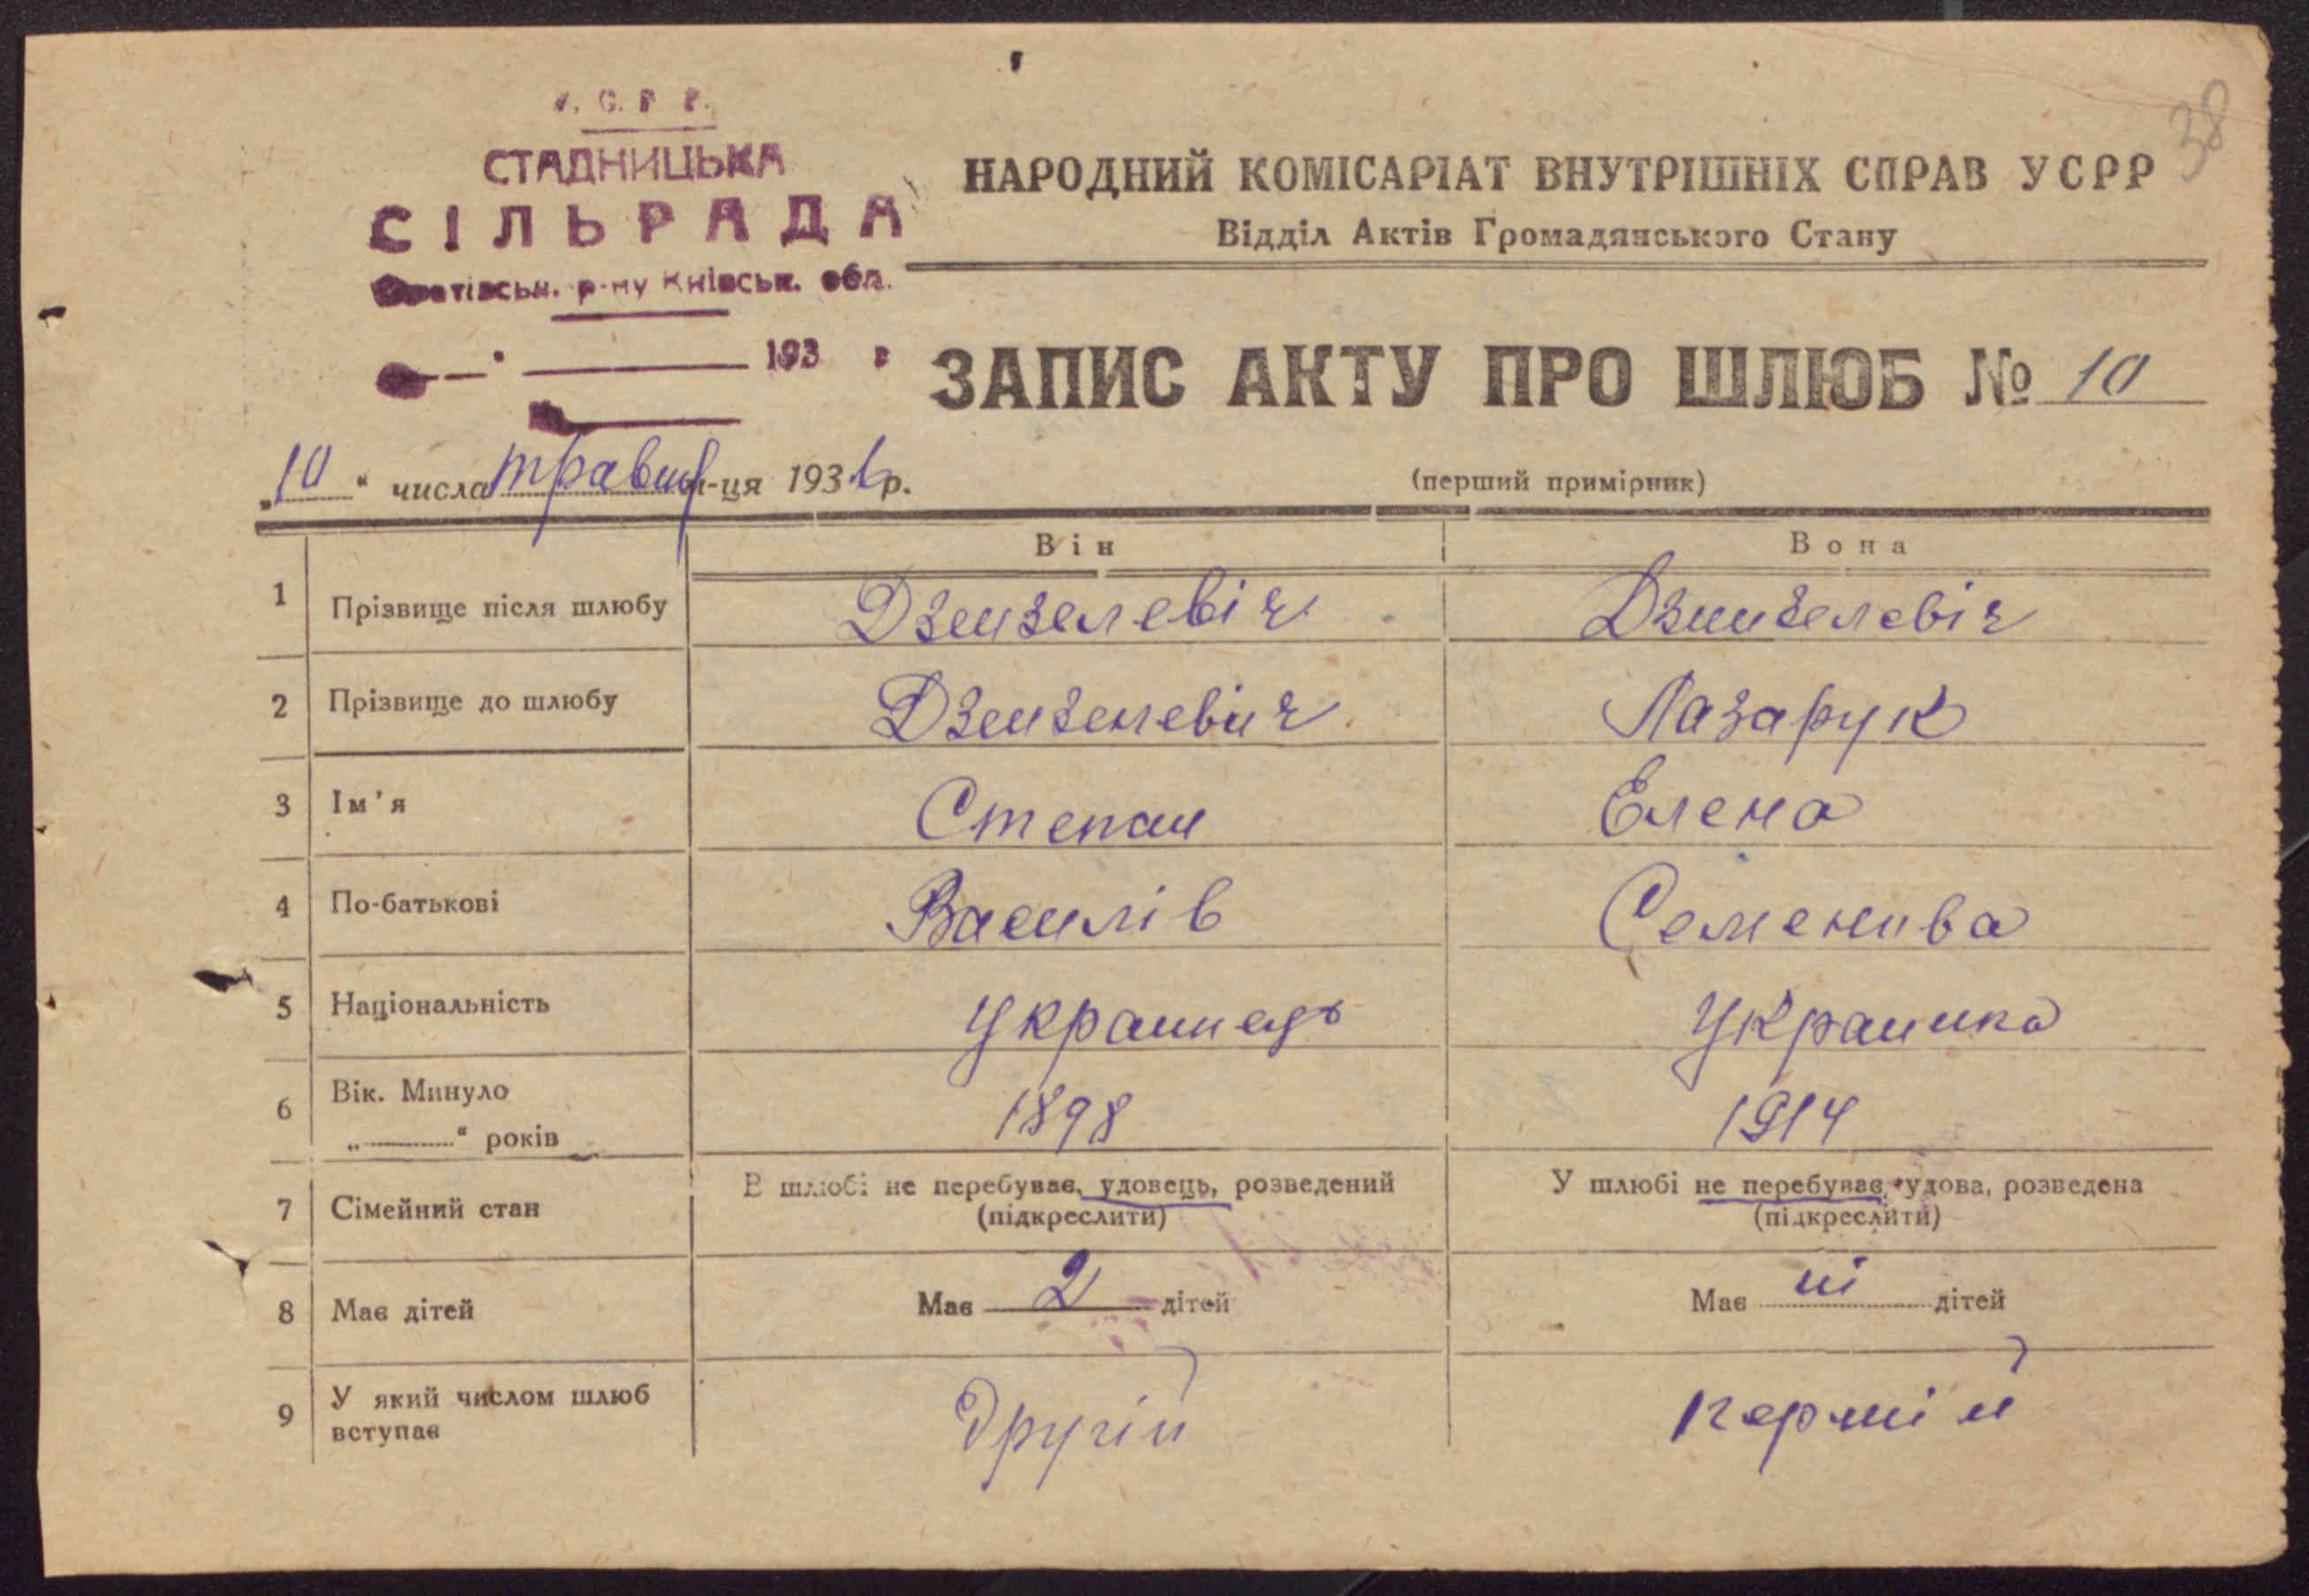 38
У. С. Р. Р.
СТАДНИЦЬКА
СІЛЬРАДА
р-ну Київськ. обл.
193 р
НАРОДНИЙ КОМІСАРІАТ ВНУТРІШНІХ СПРАВ УСРР
Відділ Актів Громадянського Стану
ЗАПИС АКТУ ПРО ШЛЮБ № 10
„10“ числа травня м-ця 1936 р.
(перший примірник)
Він Вона
1 Прізвище після шлюбу Дзензелевіч Дзензелевіч
2 Прізвище до шлюбу Дзензелевич Лазарук
3 Ім'я Степан Елена
4 По-батькові Василів Семенива
5 Національність Украинець Украинка
6 Вік. Минуло
„ “ років 1898 1914
7 Сімейний стан В шлюбі не перебував, удовець, розведений У шлюбі не перебував, удова, розведена
(підкреслити) (підкреслити)
8 Має дітей Має 2 дітей Має ні дітей
9 У який числом шлюб
вступає Другій першій